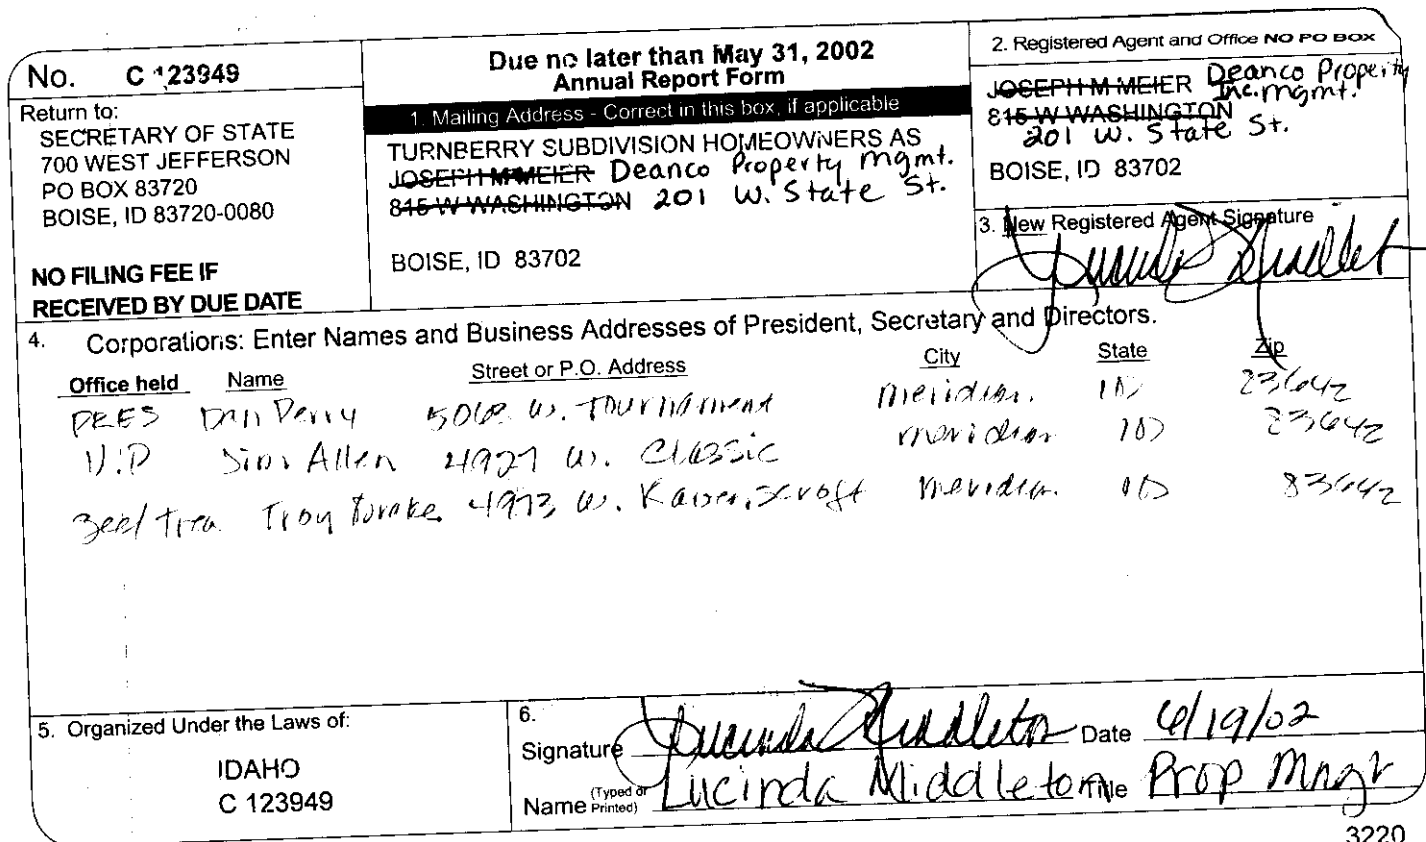 No. C 123949
Return to:
SECRETARY OF STATE
700 WEST JEFFERSON
PO BOX 83720
BOISE, ID 83720-0080
NO FILING FEE IF
RECEIVED BY DUE DATE
Due no later than May 31, 2002
Annual Report Form
1. Mailing Address - Correct in this box, if applicable
TURNBERRY SUBDIVISION HOMEOWNERS AS
JOSEPH M MEIER Deanco Property Mgmt.
815 W WASHINGTON 201 W. State St.
BOISE, ID 83702
2. Registered Agent and Office NO PO BOX
JOSEPH M MEIER Deanco Property
Inc. mgmt.
815 W WASHINGTON
201 W. State St.
BOISE, ID 83702
3. New Registered Agent Signature
4. Corporations: Enter Names and Business Addresses of President, Secretary and Directors.
Office held Name Street or P.O. Address City State Zip
PRES Dan Perry W. Tournament Meridian ID
V.P Jim Allen 4927 W. Classic Meridian ID
Troy 4973 W. Meridian ID 83642
5. Organized Under the Laws of:
IDAHO
C 123949
6.
Signature Lucinda Middleton Date 6/19/02
Name (Typed or Printed) Lucinda Middleton Title Prop Mngr
3220